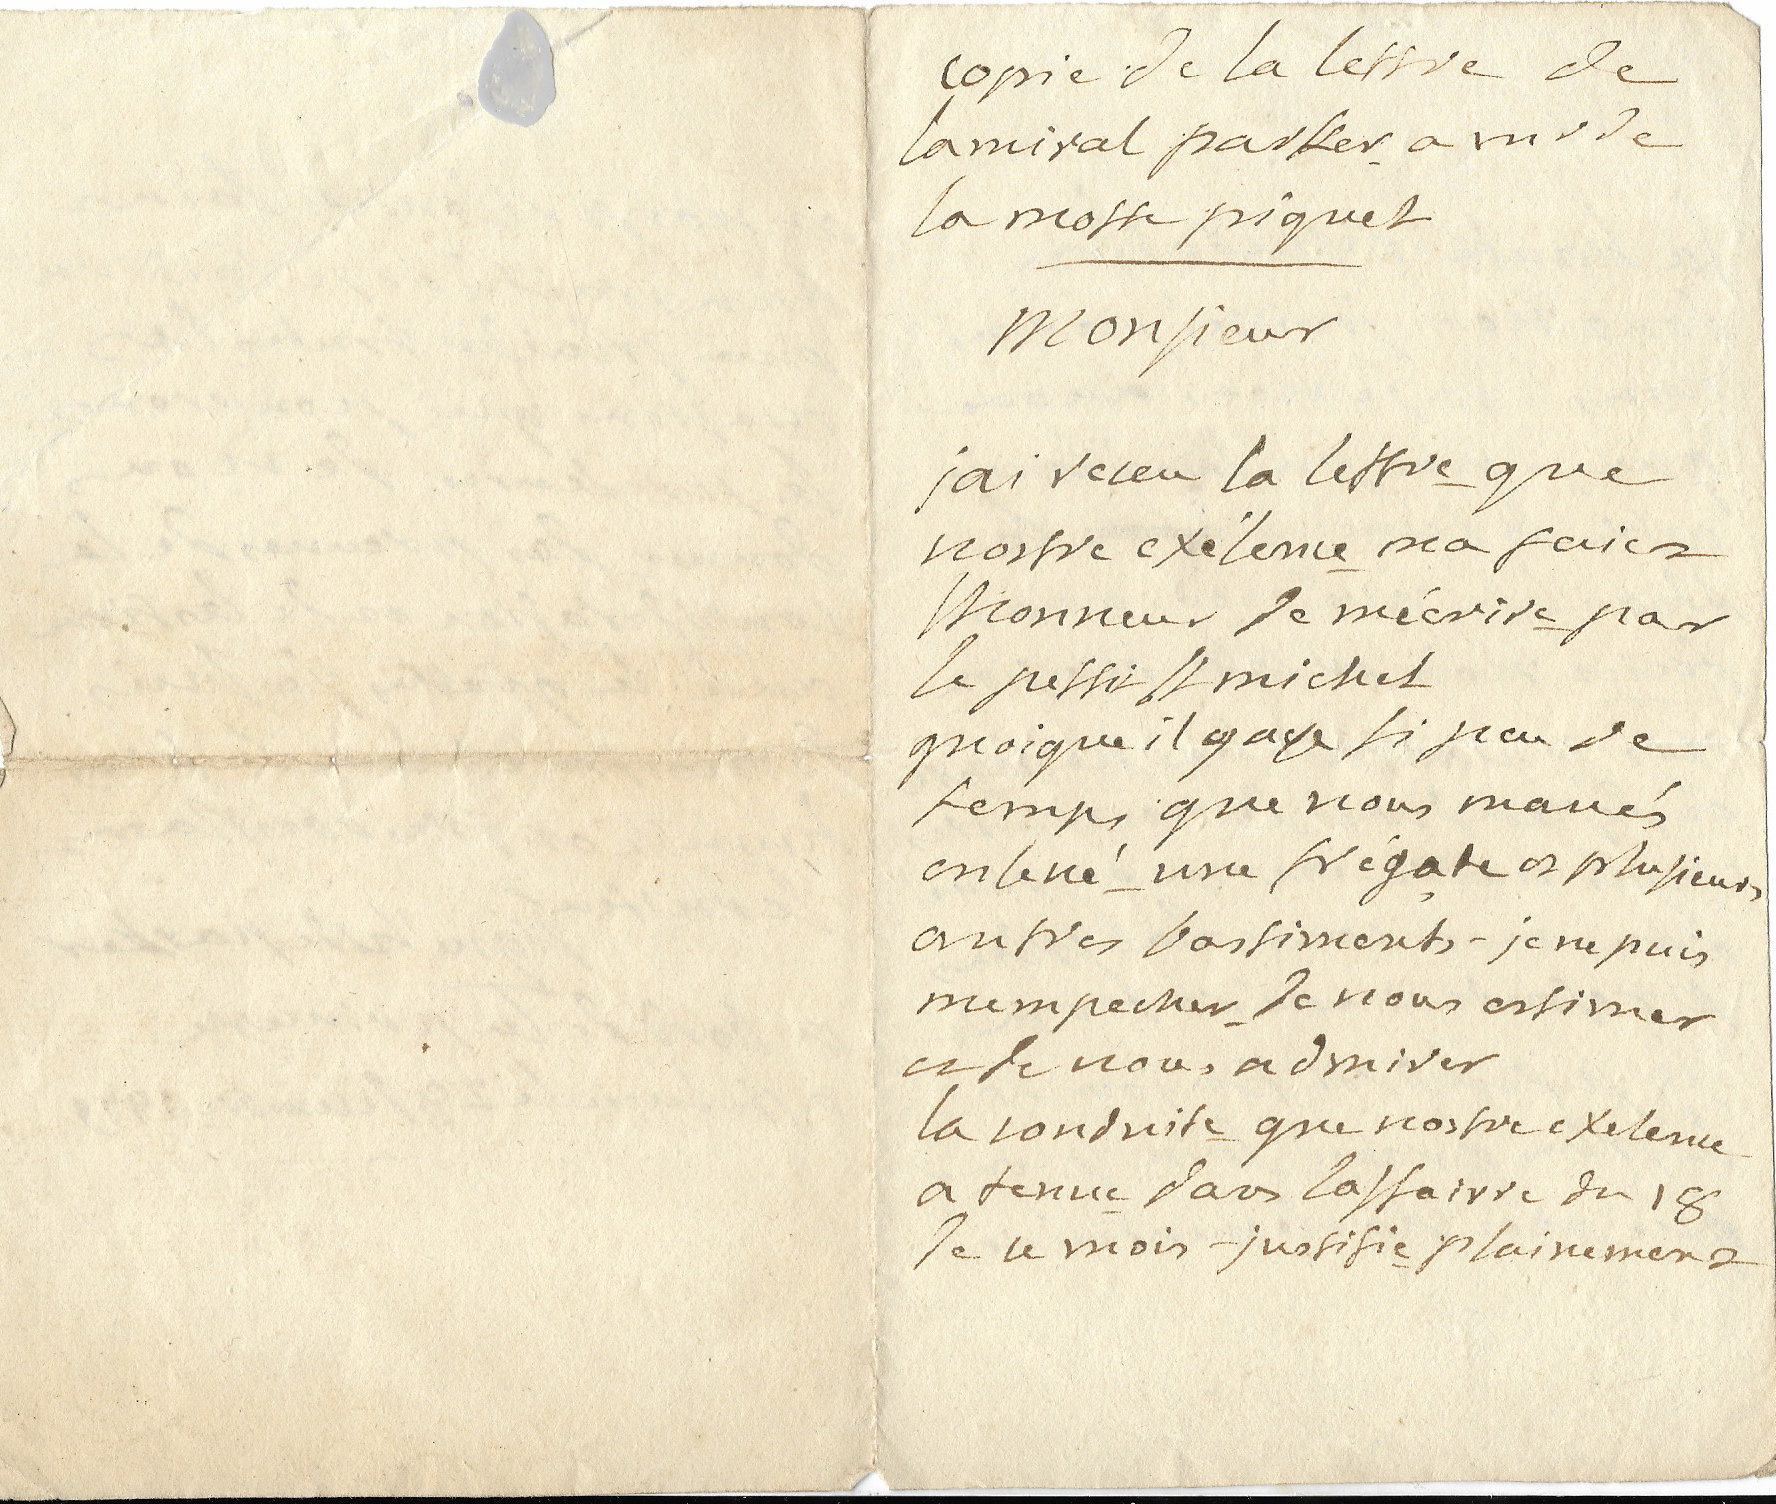 copie de la lettre de
lamiral parker a mr de
la motte piquet
Monsieur
jai receu la lettre que
vostre exélence ma faict
lhonneur de mécrire par
le pettit st michel
quoique il y aye si peu de
temps que vous mavés
enlevé une frégate et plusieurs
autres bastiments - je ne puis
mempecher de vous estimer
et de vous admirer
la conduite que vostre exelence
a tenue dans laffairre du 18
de ce mois - justifie plainement